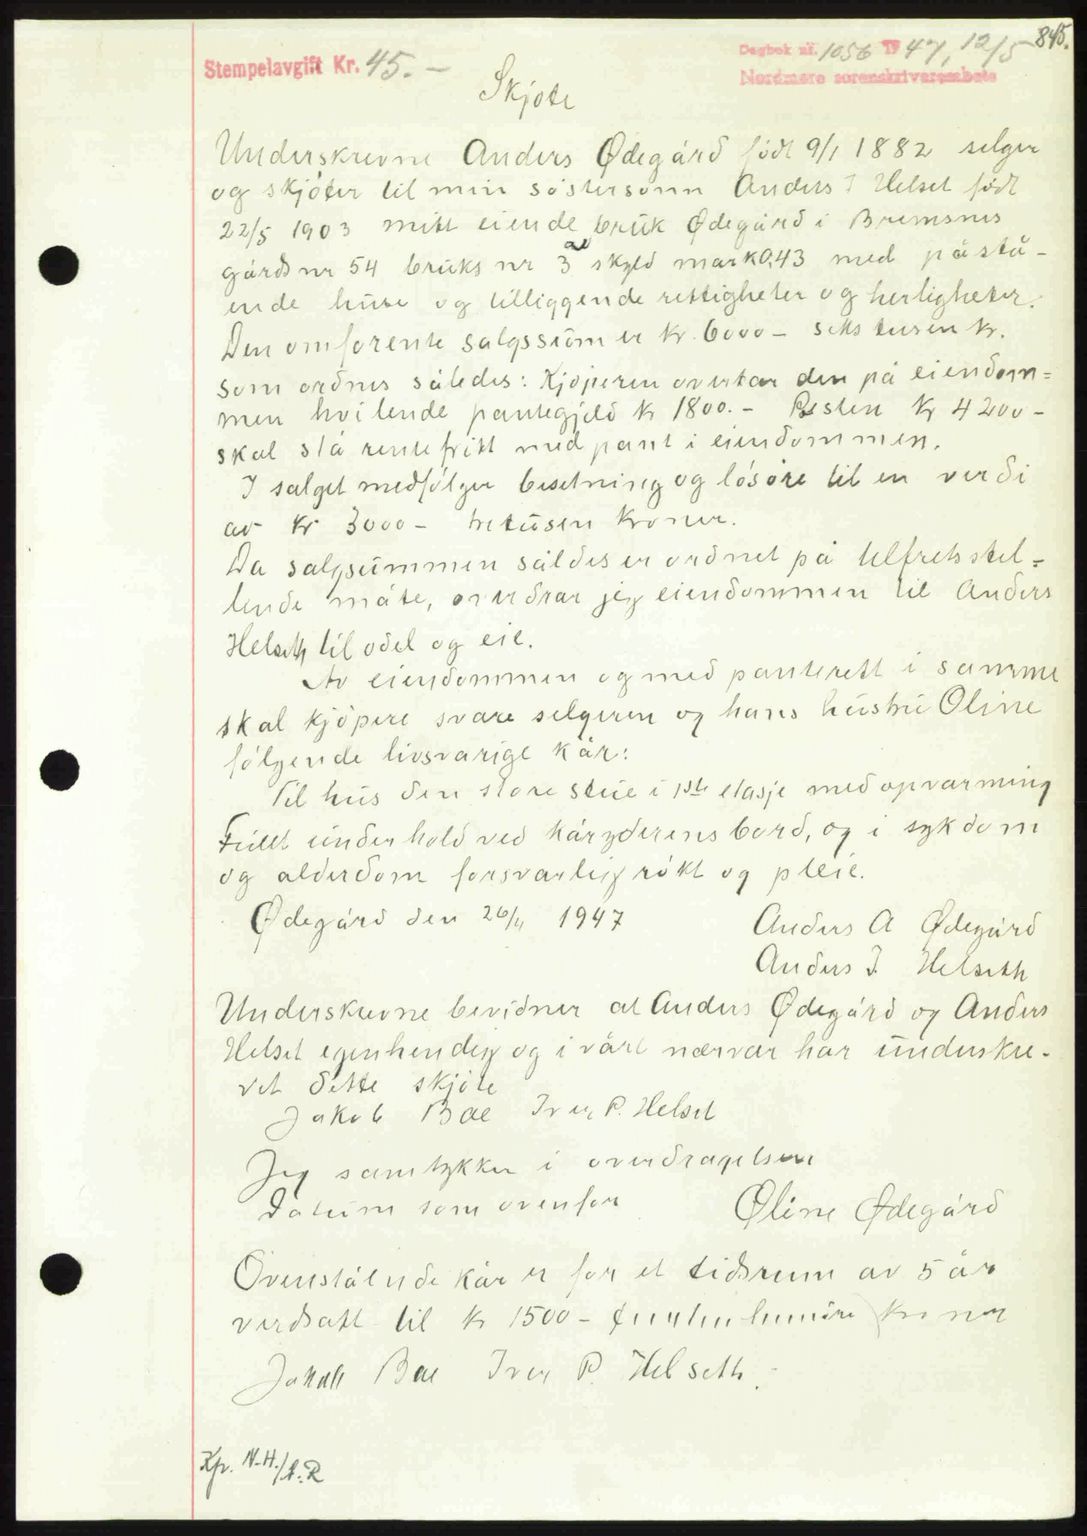 845.
Stempelavgift Kr. 45.-
Dagbok nr. 1056 1947, 12/5
Nordmøre sorenskriverembete
Skjøte
Underskrevne Anders Ødegård født 9/1 1882 selger
og skjøter til min søstersønn Anders I Helset født
22/5 1903 mitt eiende bruk Ødegård i Bremsnes
gårds nr 54 bruks nr 3 av skyld mark 0,43 med påstå-
ende huse og tilliggende rettigheter og herligheter.
Den omforente salgssum er kr. 6000- seks tusen kr.
som ordnes således: Kjøperen overtar den på eiendom=
men hvilende pantegjeld kr 1800.- Resten kr 4200-
skal stå rentefritt med pant i eiendommen.
I salget medfølger besetning og løsøre til en verdi
av kr 3000- tretusen kroner.
Da salgsummen såldes er ordnet på tilfretsstel=
lende måte, overdrar jeg eiendommen til Anders
Helseth til odel og eie.
Av eiendommen og med panterett i samme
skal kjøpere svare selgeren og hans hustru Oline
følgende livsvarige kår:
Til hus den store stue i 1ste etasje med opvarming
Fullt underhold ved kåryderens bord, og i sykdom
og alderdom forsvarlig røkt og pleie.
Ødegård den 26/4 1947
Anders A Ødegård
Anders I. Helseth
Underskrevne bevidner at Anders Ødegård og Anders
Helset egenhendig og i vårt nærvær har underskre-
vet dette skjøte
Jakob Bae Iver P. Helset
Jeg samtykker i overdragelsen
Datum som ovenfor
Oline Ødegård
Ovenstående kår er for et tidsrum av 5 år
verdsatt til kr 1500- femtenhundre kroner
Jakob Bae Iver P. Helseth.
Kfr. N.H./A.R